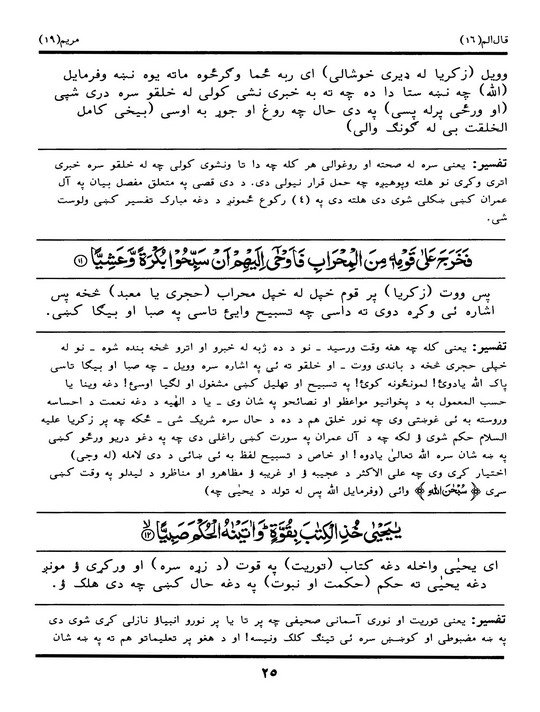 قال الم(۱۶) مريم(۱۹)
وويل (زكريا له ډيرى خوشالى) اى ربه ځما وګرځوه ماته يوه نښه وفرمايل
(الله) چه نښه ستا دا ده چه ته به خبرى نشى كولى له خلقو سره درى شپى
(او ورځى پرله پسى) په دى حال چه روغ او جوړ به اوسى (بيخى كامل
الخلقت بى له ګونګ والى)
تفسير: يعنى سره له صحته او روغوالى هر كله چه دا تا ونشوى كولى چه له خلقو سره خبرى
اترى وكړى نو هلته وپوهيږه چه حمل قرار نيولى دى. د دى قصى په متعلق مفصل بيان په آل
عمران كښى ښكلى شوى دى هلته دى په (۴) ركوع ځمونږ د دغه مبارک تفسير كښى ولوست
شى.
فَخَرَجَ عَلٰى قَوْمِهٖ مِنَ الْمِحْرَابِ فَاَوْحٰۤى اِلَيْهِمْ اَنْ سَبِّحُوْا بُكْرَةً وَّعَشِيًّا ۝۱۱
پس ووت (زكريا) پر قوم خپل له خپل محراب (حجرى يا معبد) څخه پس
اشاره ئى وكړه دوى ته داسى چه تسبيح وايئ تاسى په صبا او بيګا كښى.
تفسير: يعنى كله چه هغه وقت ورسيد ـ نو د ده ژبه له خبرو او اترو څخه بنده شوه ـ نو له
خپلى حجرى څخه د باندى ووت ـ او خلقو ته ئى په اشاره سره وويل ـ چه صبا او بيګا تاسى
پاک الله يادوئ! لمونځونه كوئ! په تسبيح او تهليل كښى مشغول او لګيا اوسئ! دغه وينا يا
حسب المعمول به د پخوانيو مواعظو او نصائحو په شان وى ـ يا د الٰهيه د دغه نعمت د احساسه
وروسته به ئى غوښتى وى چه نور خلق هم د ده د حال سره شريک شى ـ ځكه چه پر زكريا عليه
السلام حكم شوى ؤ لكه چه د آل عمران په سورت كښى راغلى دى چه په دغو دريو ورځو كښى
په ښه شان سره الله تعالىٰ يادوه! او خاص د تسبيح لفظ به ئى ښائى د دى لامله (له وجى)
اختيار كړى وى چه على الاكثر د عجيبه ؤ او غريبه ؤ مظاهرو او مناظرو د ليدلو په وقت كښى
سړى ﴿ سُبْحٰنَ اللهِ ﴾ وائى (وفرمايل الله پس له تولد د يحيٰى چه)
يٰيَحْيٰى خُذِ الْكِتٰبَ بِقُوَّةٍ ؕ وَاٰتَيْنٰهُ الْحُكْمَ صَبِيًّا ۝۱۲ ۙ
اى يحيٰى واخله دغه كتاب (توريت) په قوت (د زړه سره) او وركړى ؤ مونږ
دغه يحيٰى ته حكم (حكمت او نبوت) په دغه حال كښى چه دى هلک ؤ.
تفسير: يعنى توريت او نورى آسمانى صحيفى چه پر تا يا پر نورو انبياؤ نازلى كړى شوى دى
په ښه مضبوطى او كوښښ سره ئى ټينګ كلک ونيسه! او د هغو پر تعليماتو هم ته په ښه شان
۲۵